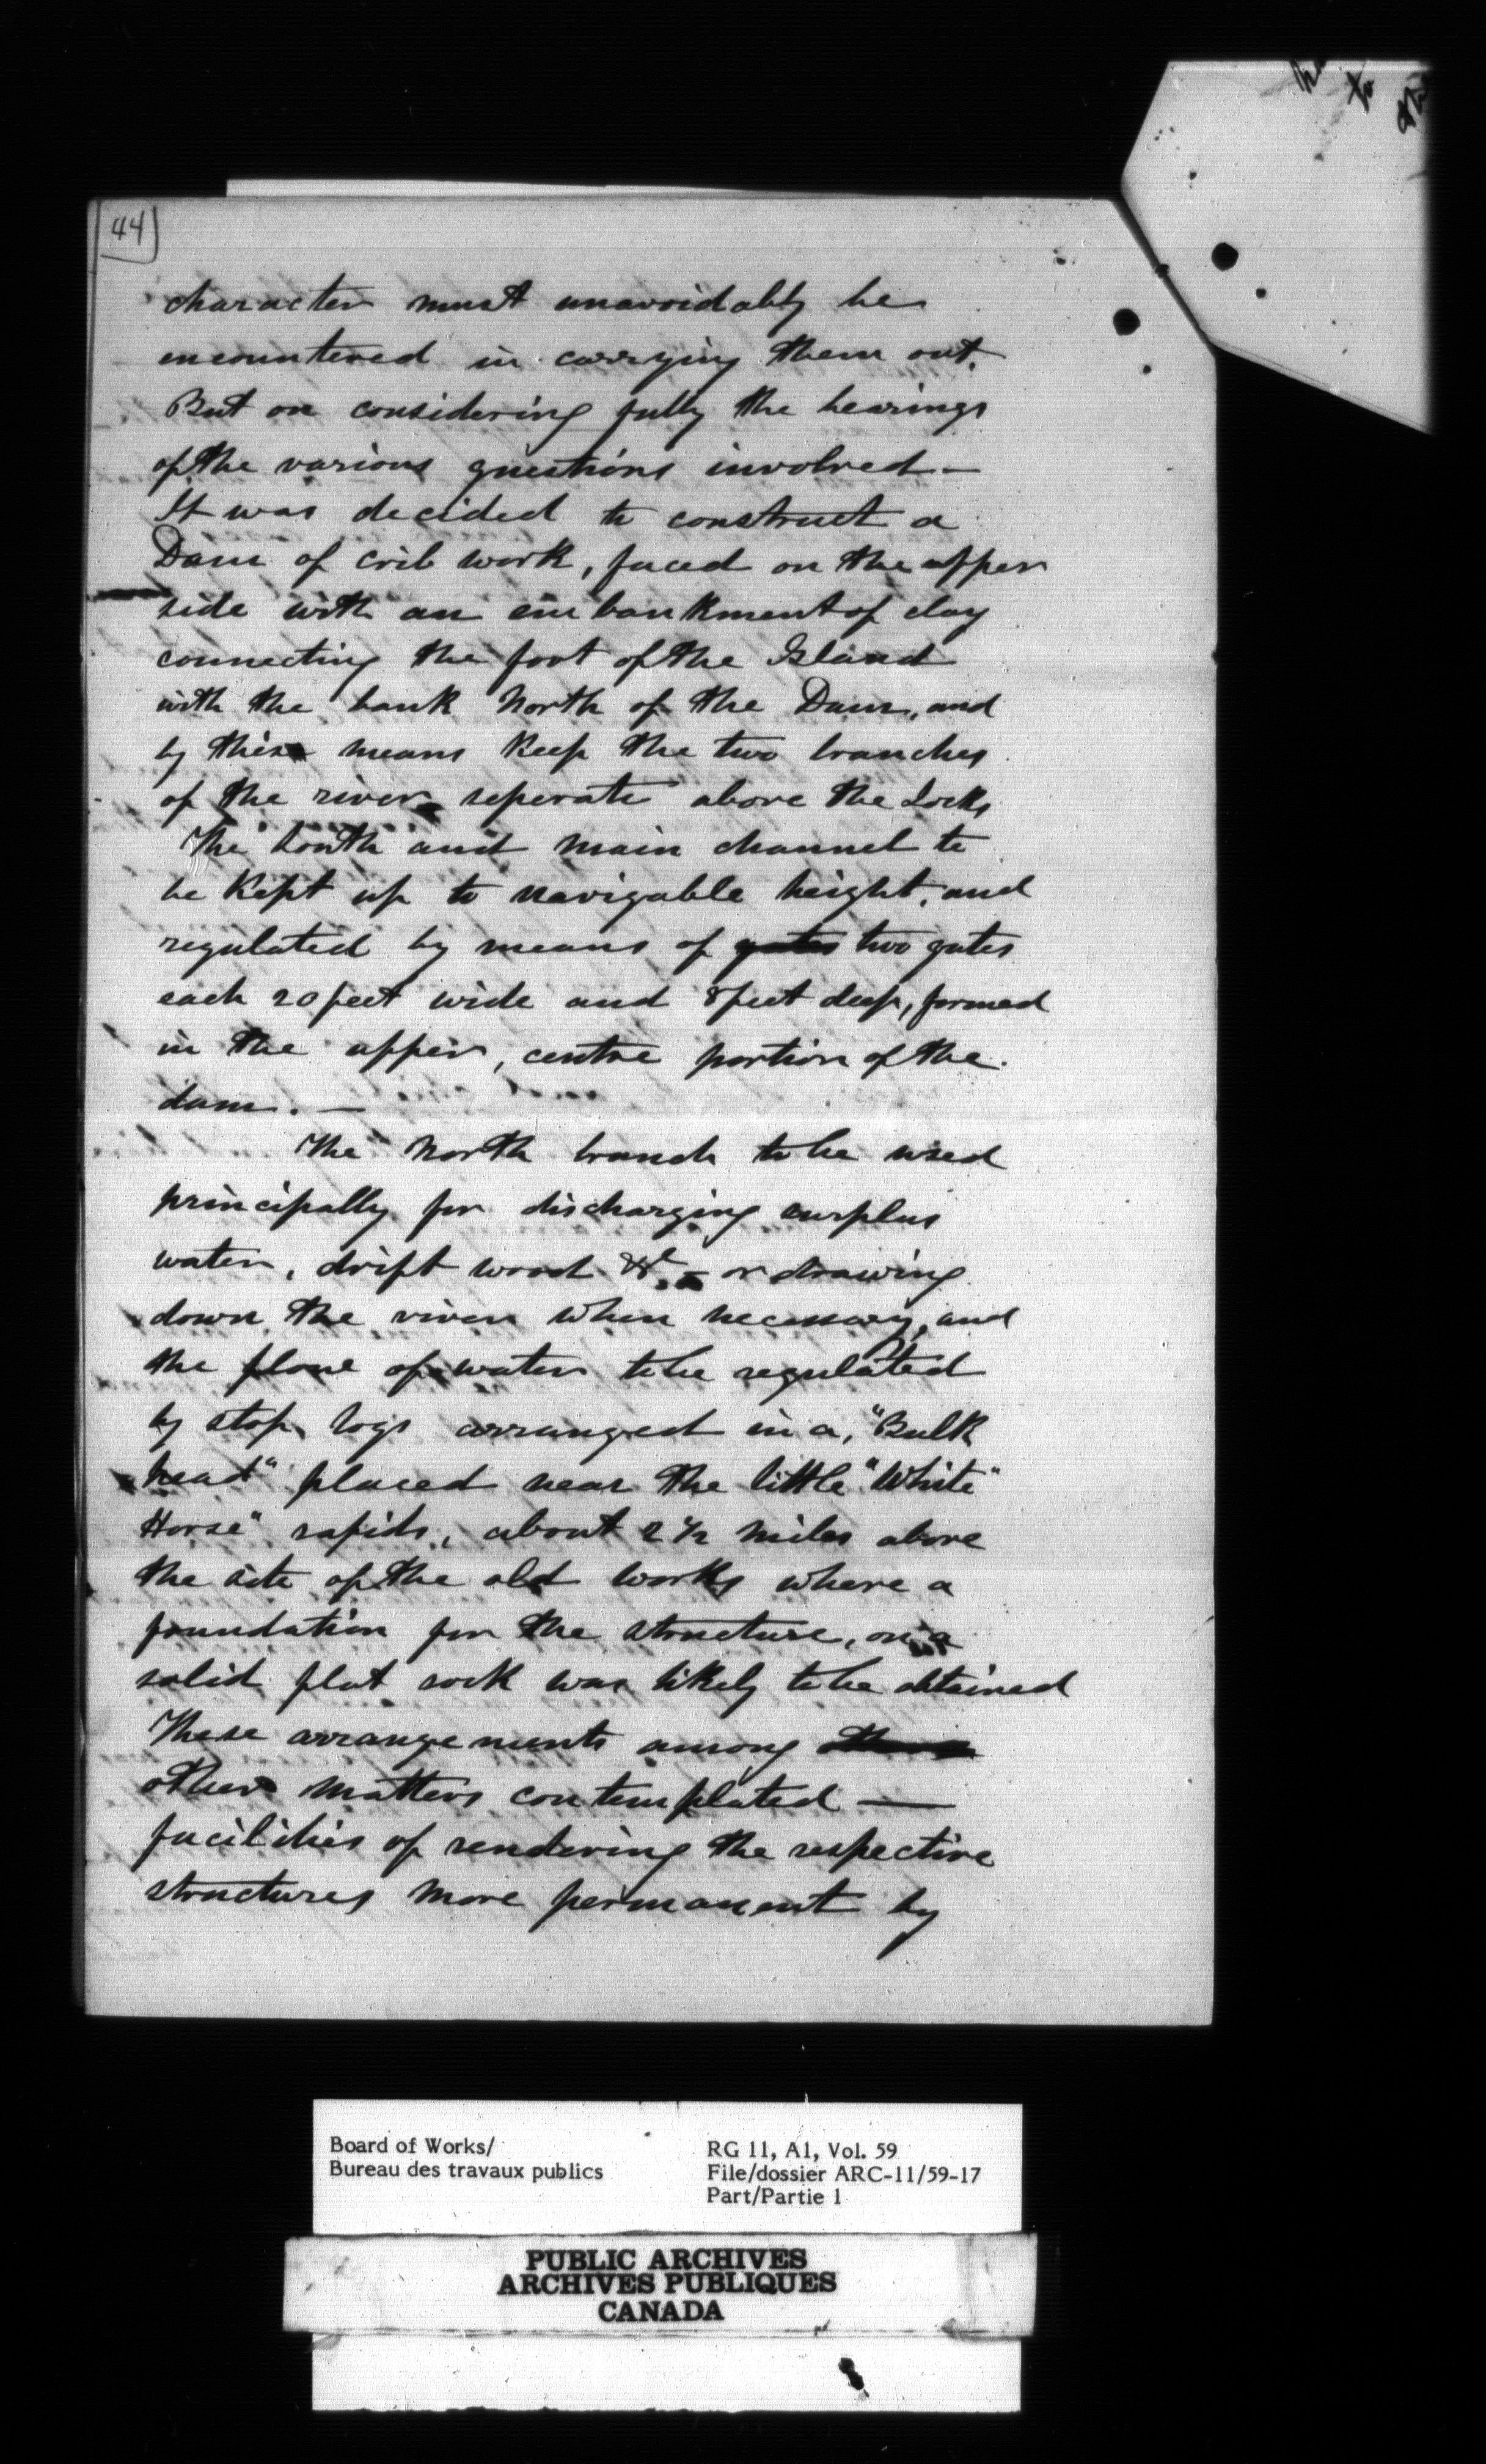 44
character must unavoidably be
encountered in carrying them out.
But on considering fully the bearings
of the various questions involved —
It was decided to construct a
Dam of crib work, faced on the upper
side with an embankment of clay
connecting the foot of the Island
with the bank North of the Dam, and
by this means keep the two branches
of the river seperate above the Locks
The South and main channel to
be kept up to navigable height, and
regulated by means of gates two gates
each 20 feet wide and 8 feet deep, formed
in the upper, centre portion of the
dam. —
The North branch to be used
principally for discharging surplus
water, drift wood &c. — or drawing
down the river when necessary, and
the flow of water to be regulated
by stop logs arranged in a, "Bulk
head" placed near the little "White"
Horse" rapids, about 2 1/2 miles above
the site of the old works where a
foundation for the structure, on a
solid flat rock was likely to be obtained
These arrangements among
other matters contemplated —
facilities of rendering the respective
structures more permanent by
Board of Works/
Bureau des travaux publics
RG 11, A1, Vol. 59
File/dossier ARC-11/59-17
Part/Partie 1
PUBLIC ARCHIVES
ARCHIVES PUBLIQUES
CANADA